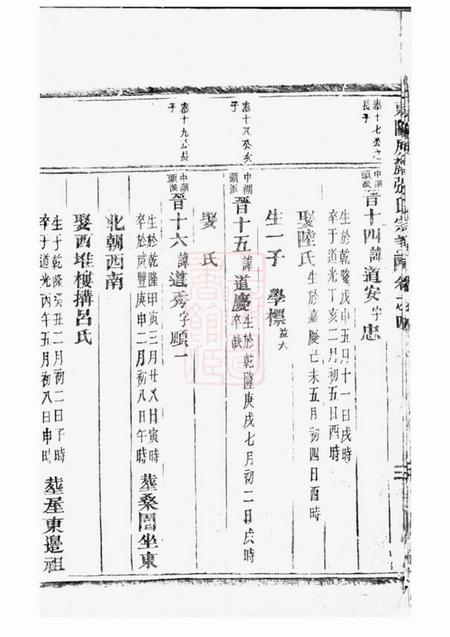 泰十七公之
長子
中湖
頭派
晉十四諱道安字忠
生於乾隆戊申五月十一日戌時
卒于道光丁亥二月初五日酉時
娶陸氏生於嘉慶己未五月初四日酉時
生一子 學標益六
泰十八公
子
中湖
頭派
晉十五諱道慶生於乾隆庚戌七月初二日戌時
卒缺
娶 氏
泰十九公長
子
中湖
頭派
晉十六諱道 字順一
生於乾隆甲寅三月廿八日寅時
卒於咸豐庚申二月初八日午時
葬桑園坐東
北朝西南
娶西堆樓搆呂氏
生于乾隆癸丑二月初二日子時
卒于道光丙午五月初八日申時
葬屋東邊祖